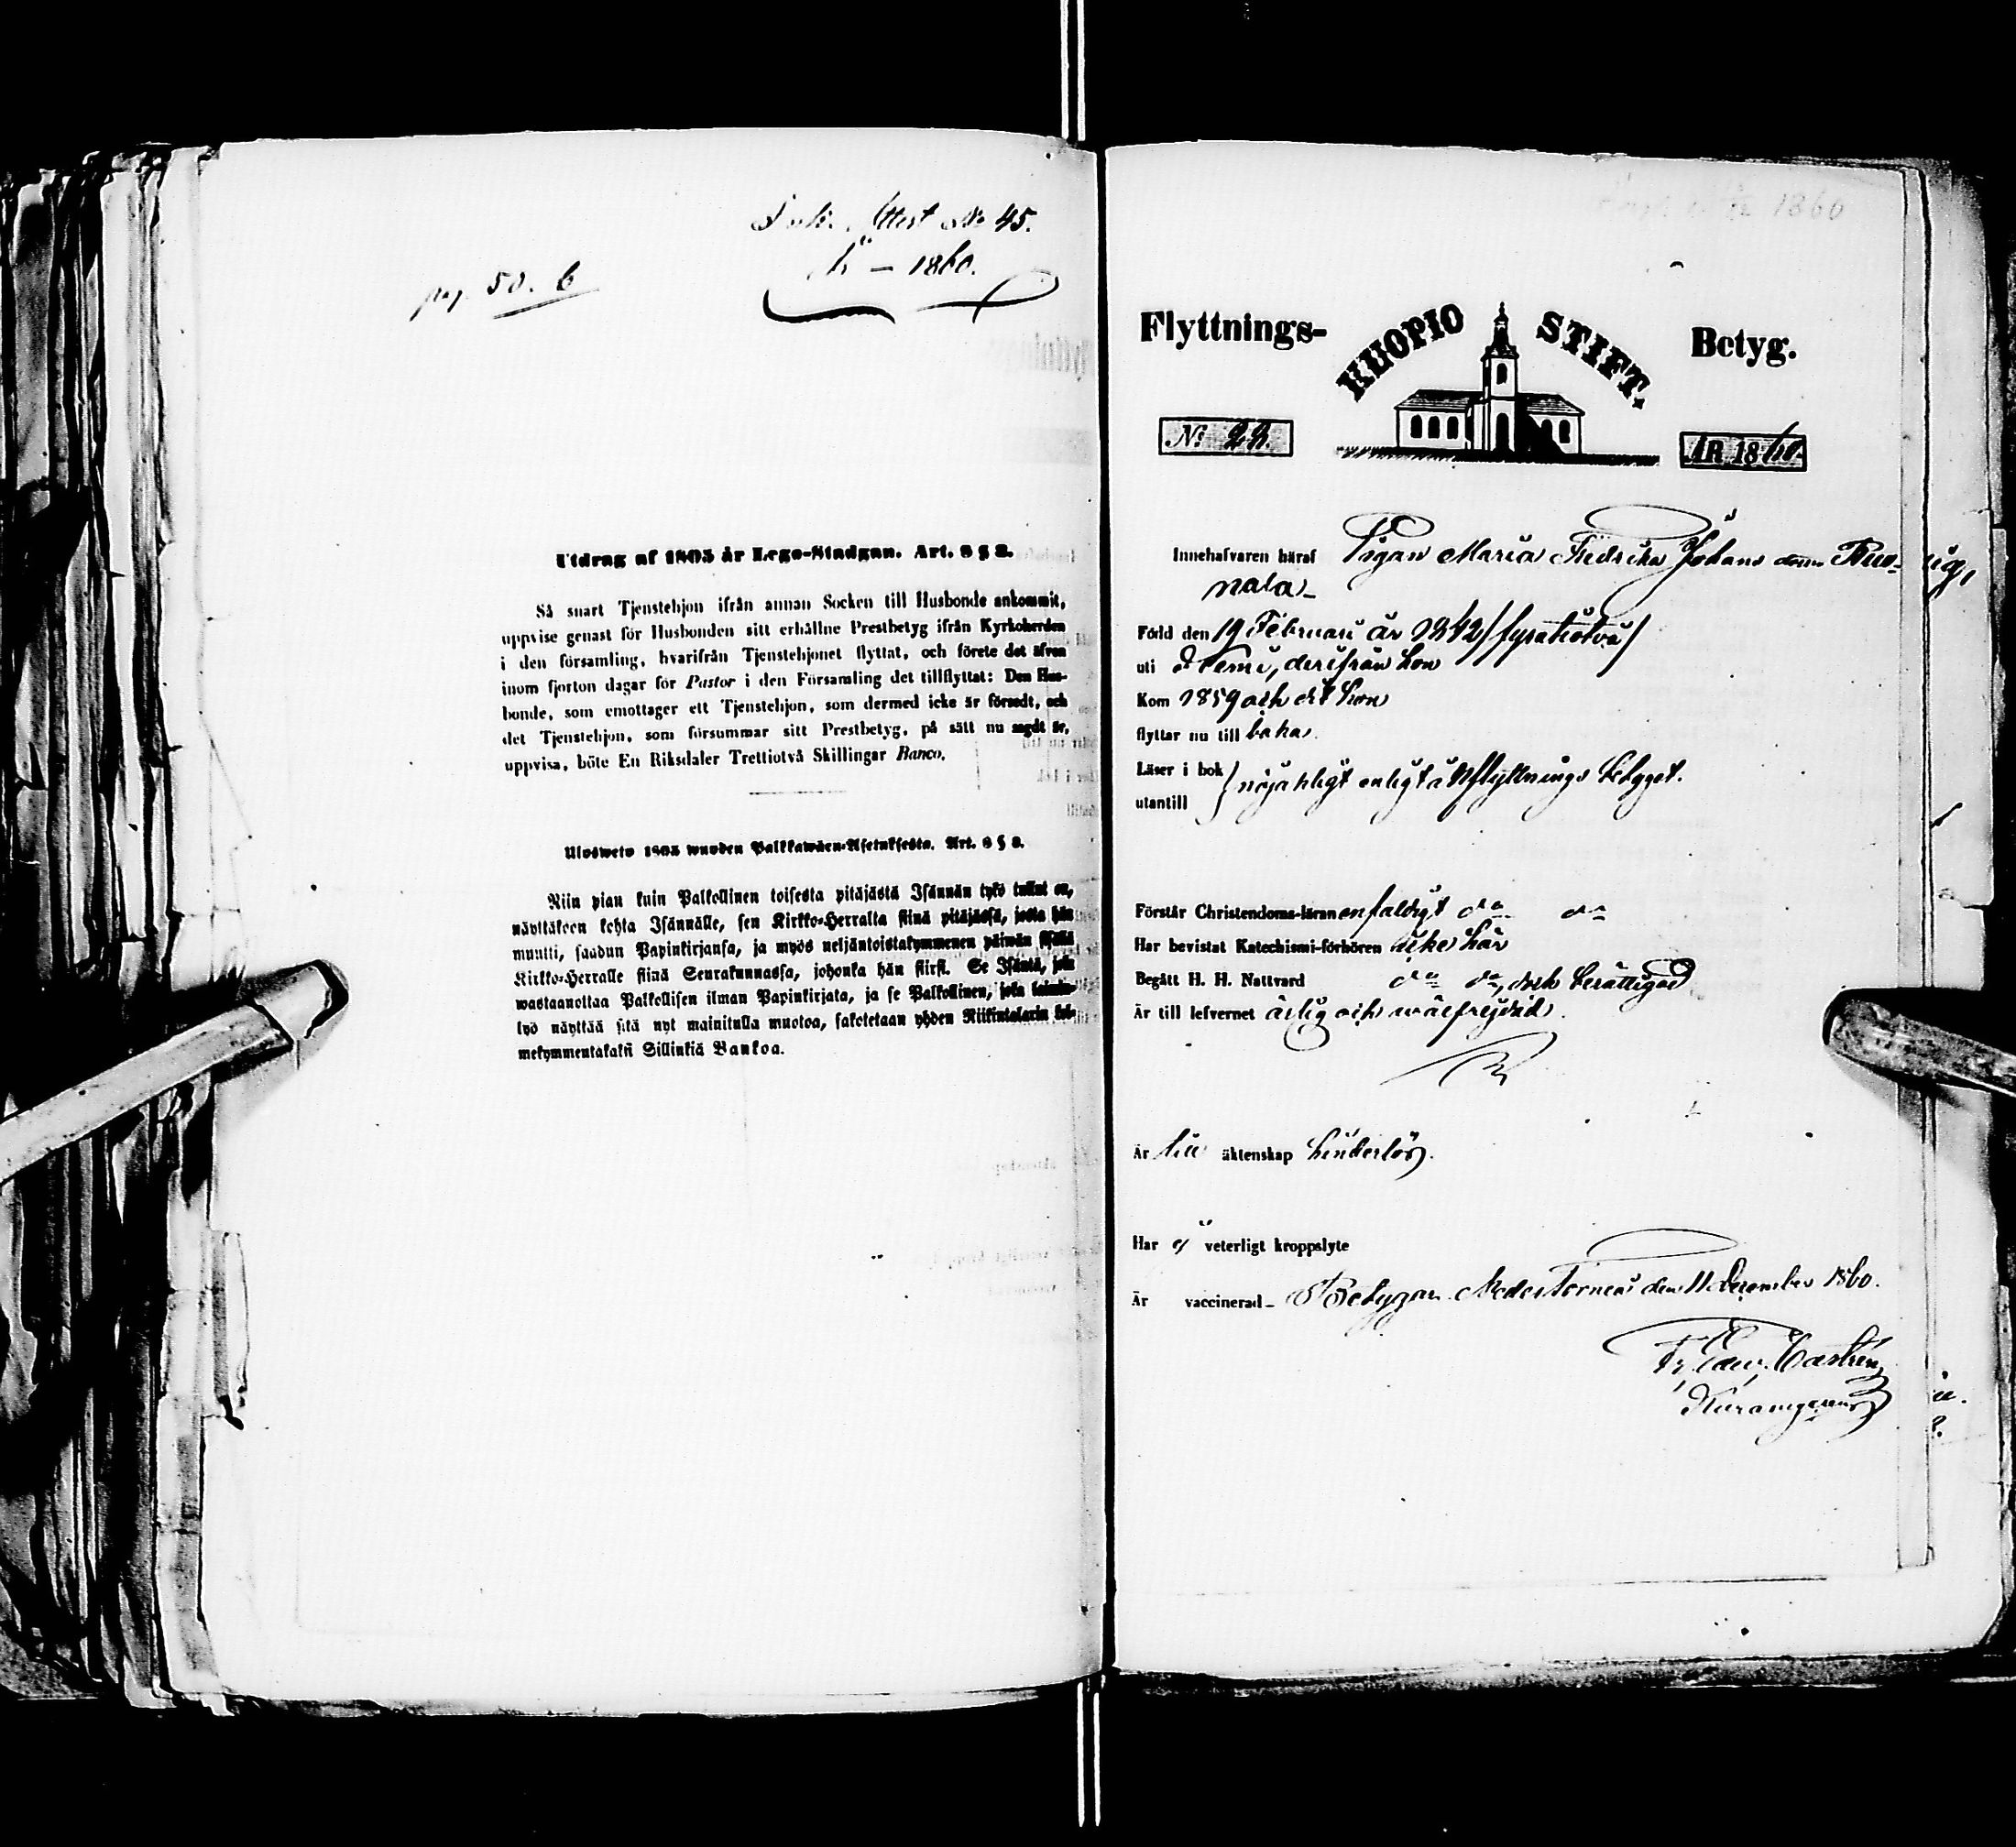 Attest No 45.
1860.
pag. 50. b
Utdrag af 1805 år Lego-Stadgan. Art. 6 § 8.
Så snart Tjenstehjon ifrån annan Socken till Husbonde ankommit,
uppvise genast för Husbonden sitt erhållne Prestbetyg ifrån Kyrkoherden
i den församling, hvarifrån Tjenstehjonet flyttat, och förete det äfven
inom fjorton dagar för Pastor i den Församling det tillflyttat: Den Hus-
bonde, som emottager ett Tjenstehjon, som dermed icke är försedt, och
det Tjenstehjon, som försummar sitt Prestbetyg, på sätt nu sagdt är,
uppvisa, böte En Riksdaler Trettiotvå Skillingar Banco.
Uloswetv 1805 wuoden Palkkawäen-Asetuksesta. Art. 6 § 8.
Niin pian kuin Palkollinen toisesta pitäjästä Isännän tykö tullut on,
näyttäköön kohta Isännälle, sen Kirkko-Herralta siinä pitäjässä, josta hän
muutti, saadun Papinkirjansa, ja myös neljäntoistakymmenen päiwän sisällä
Kirkko-Herralle siinä Seurakunnassa, johonka hän siirsi. Se Isäntä, joka
wastaanottaa Palkollisen ilman Papinkirjata, ja se Palkollinen, joka laimin-
lyö näyttää sitä nyt mainitulla muotoa, sakotetaan yhden Riikintalarin kol-
mekymmentakaksi Sillinkiä Bankoa.
1860
Flyttnings- KUOPIO STIFT. Betyg.
No 28. ÅR 1860.
Innehafvaren häraf Pigan Maria Fredrika Johans dotter Ruo-
nala
Född den 19 Februari år 1842 / fyratiotvå /
uti Kemi, derifrån hon
Kom 1859 och dit hon
flyttar nu till baka.
Läser i bok
utantill } nöjaktigt enligt inflyttnings betyget.
Förstår Christendoms-läran enfaldigt do do
Har bevistat Katechismi-förhören icke här
Begått H. H. Nattvard do do, dock berättigad
Är till lefvernet ärlig och wälfrejdad.
Är till äktenskap hinderlös.
Har ej veterligt kroppslyte
Är vaccinerad - Betygar. Neder Torneå den 11 December 1860.
Fr. Edv. Castrén